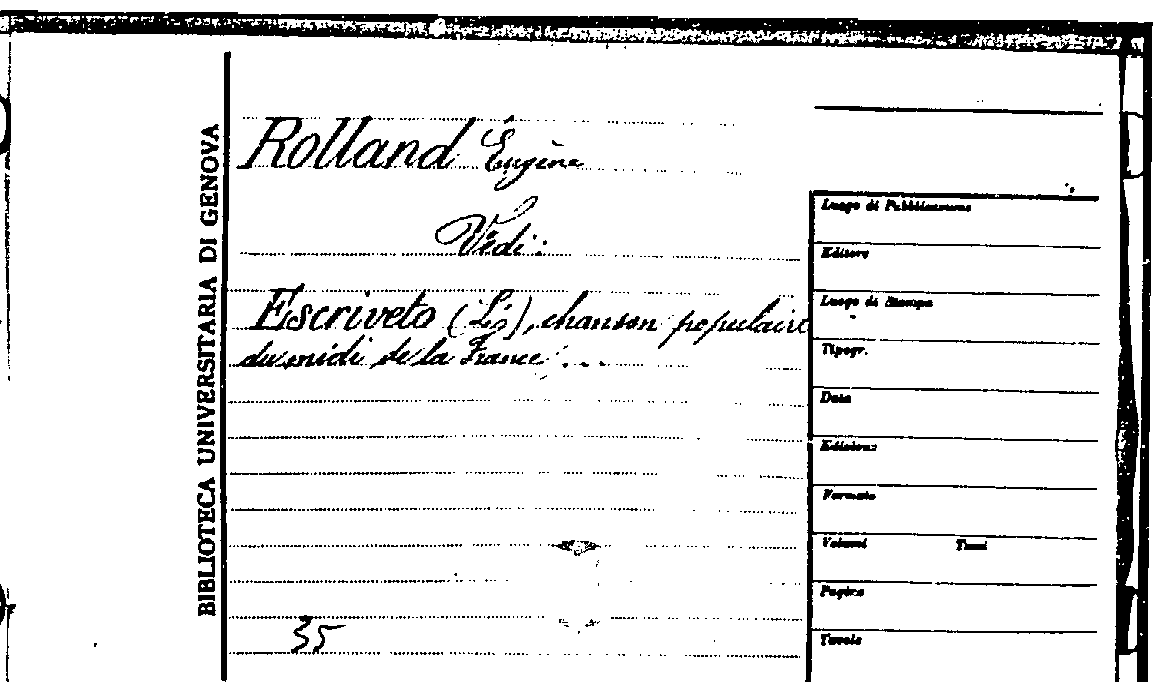 BIBLIOTECA UNIVERSITARIA DI GENOVA
Rolland Eugène
Vedi:
Escriveto (L'), chanson populaire
du midi de la France . . .
35
Luogo di Pubblicazione
Editore
Luogo di Stampa
Tipogr.
Data
Edizione
Formato
Volumi Tomi
Pagine
Tavole